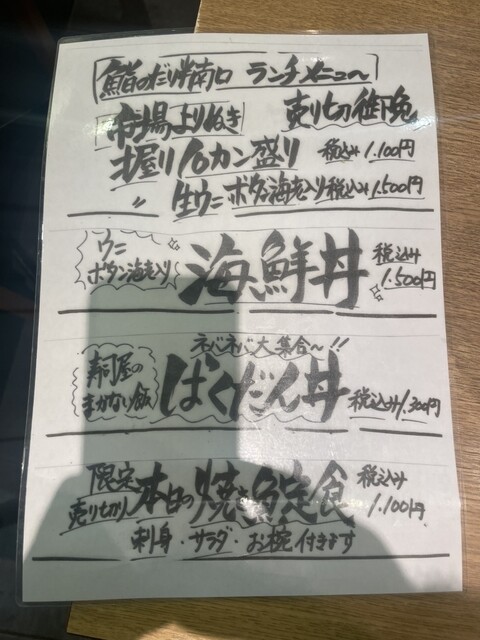 鮨のだり半 南口 ランチメニュ〜
市場よりぬき 売り切れ御免
握り10カン盛り 税込み1.100円
〃 生ウニ ボタン海老入り 税込み1.500円
ウニ
ボタン海老入り
海鮮丼 税込み
1.500円
ネバネバ大集合〜!!
寿司屋の
まかない飯
ばくだん丼 税込み1.300円
限定
売り切り
本日の焼き魚定食 税込み
1.100円
刺身・サラダ・お椀付きます